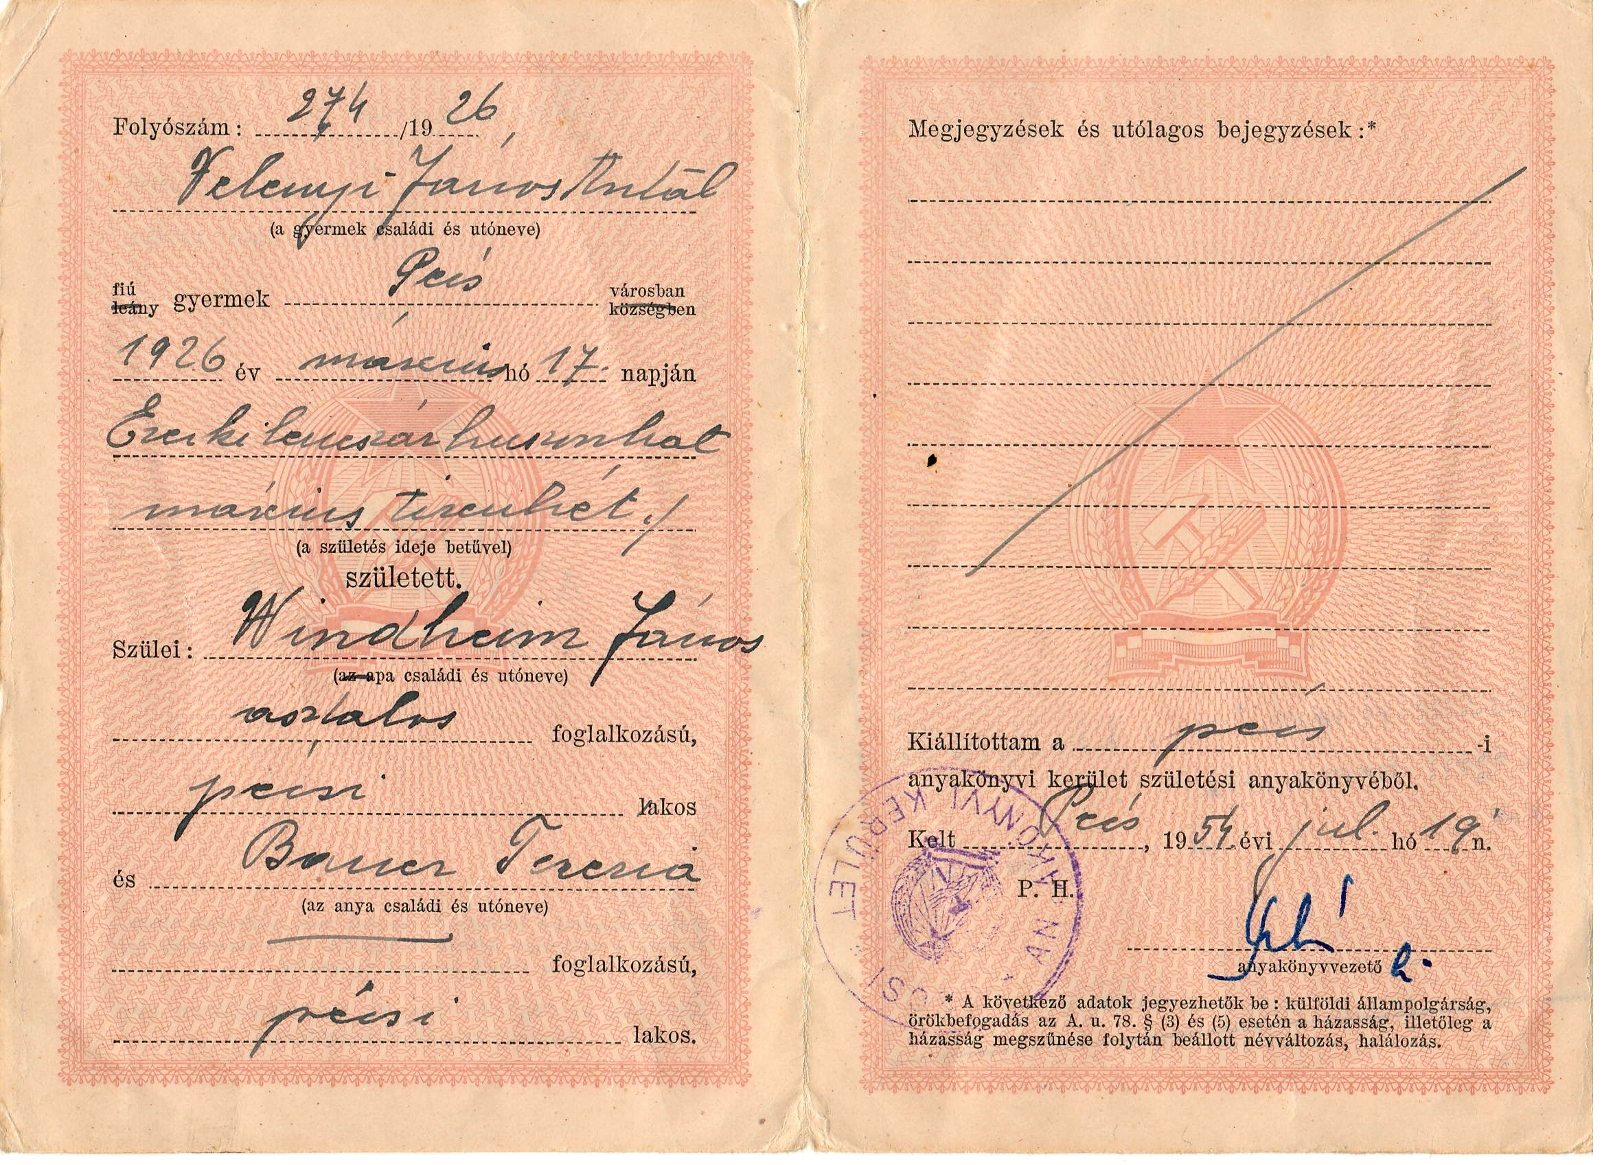 Folyószám: 274/1926,
Velenyi János Antal
(a gyermek családi és utóneve)
fiú
leány gyermek Pécs városban
községben
1926 év március hó 17. napján
Ezerkilencszázhuszonhat
március tizenhét./
(a születés ideje betűvel)
született.
Szülei: Windheim János
(az apa családi és utóneve)
asztalos foglalkozású,
pécsi lakos
és Bauer Terezia
(az anya családi és utóneve)
foglalkozású,
pécsi lakos.
Megjegyzések és utólagos bejegyzések:*
Kiállítottam a pécs-i
anyakönyvi kerület születési anyakönyvéből.
Kelt Pécs, 1954 évi jul. hó 19 n.
P. H.
anyakönyvvezető h.
* A következő adatok jegyezhetők be: külföldi állampolgárság,
örökbefogadás az A. u. 78. § (3) és (5) esetén a házasság, illetőleg a
házasság megszűnése folytán beállott névváltozás, halálozás.
KÖNYVI KERÜLET